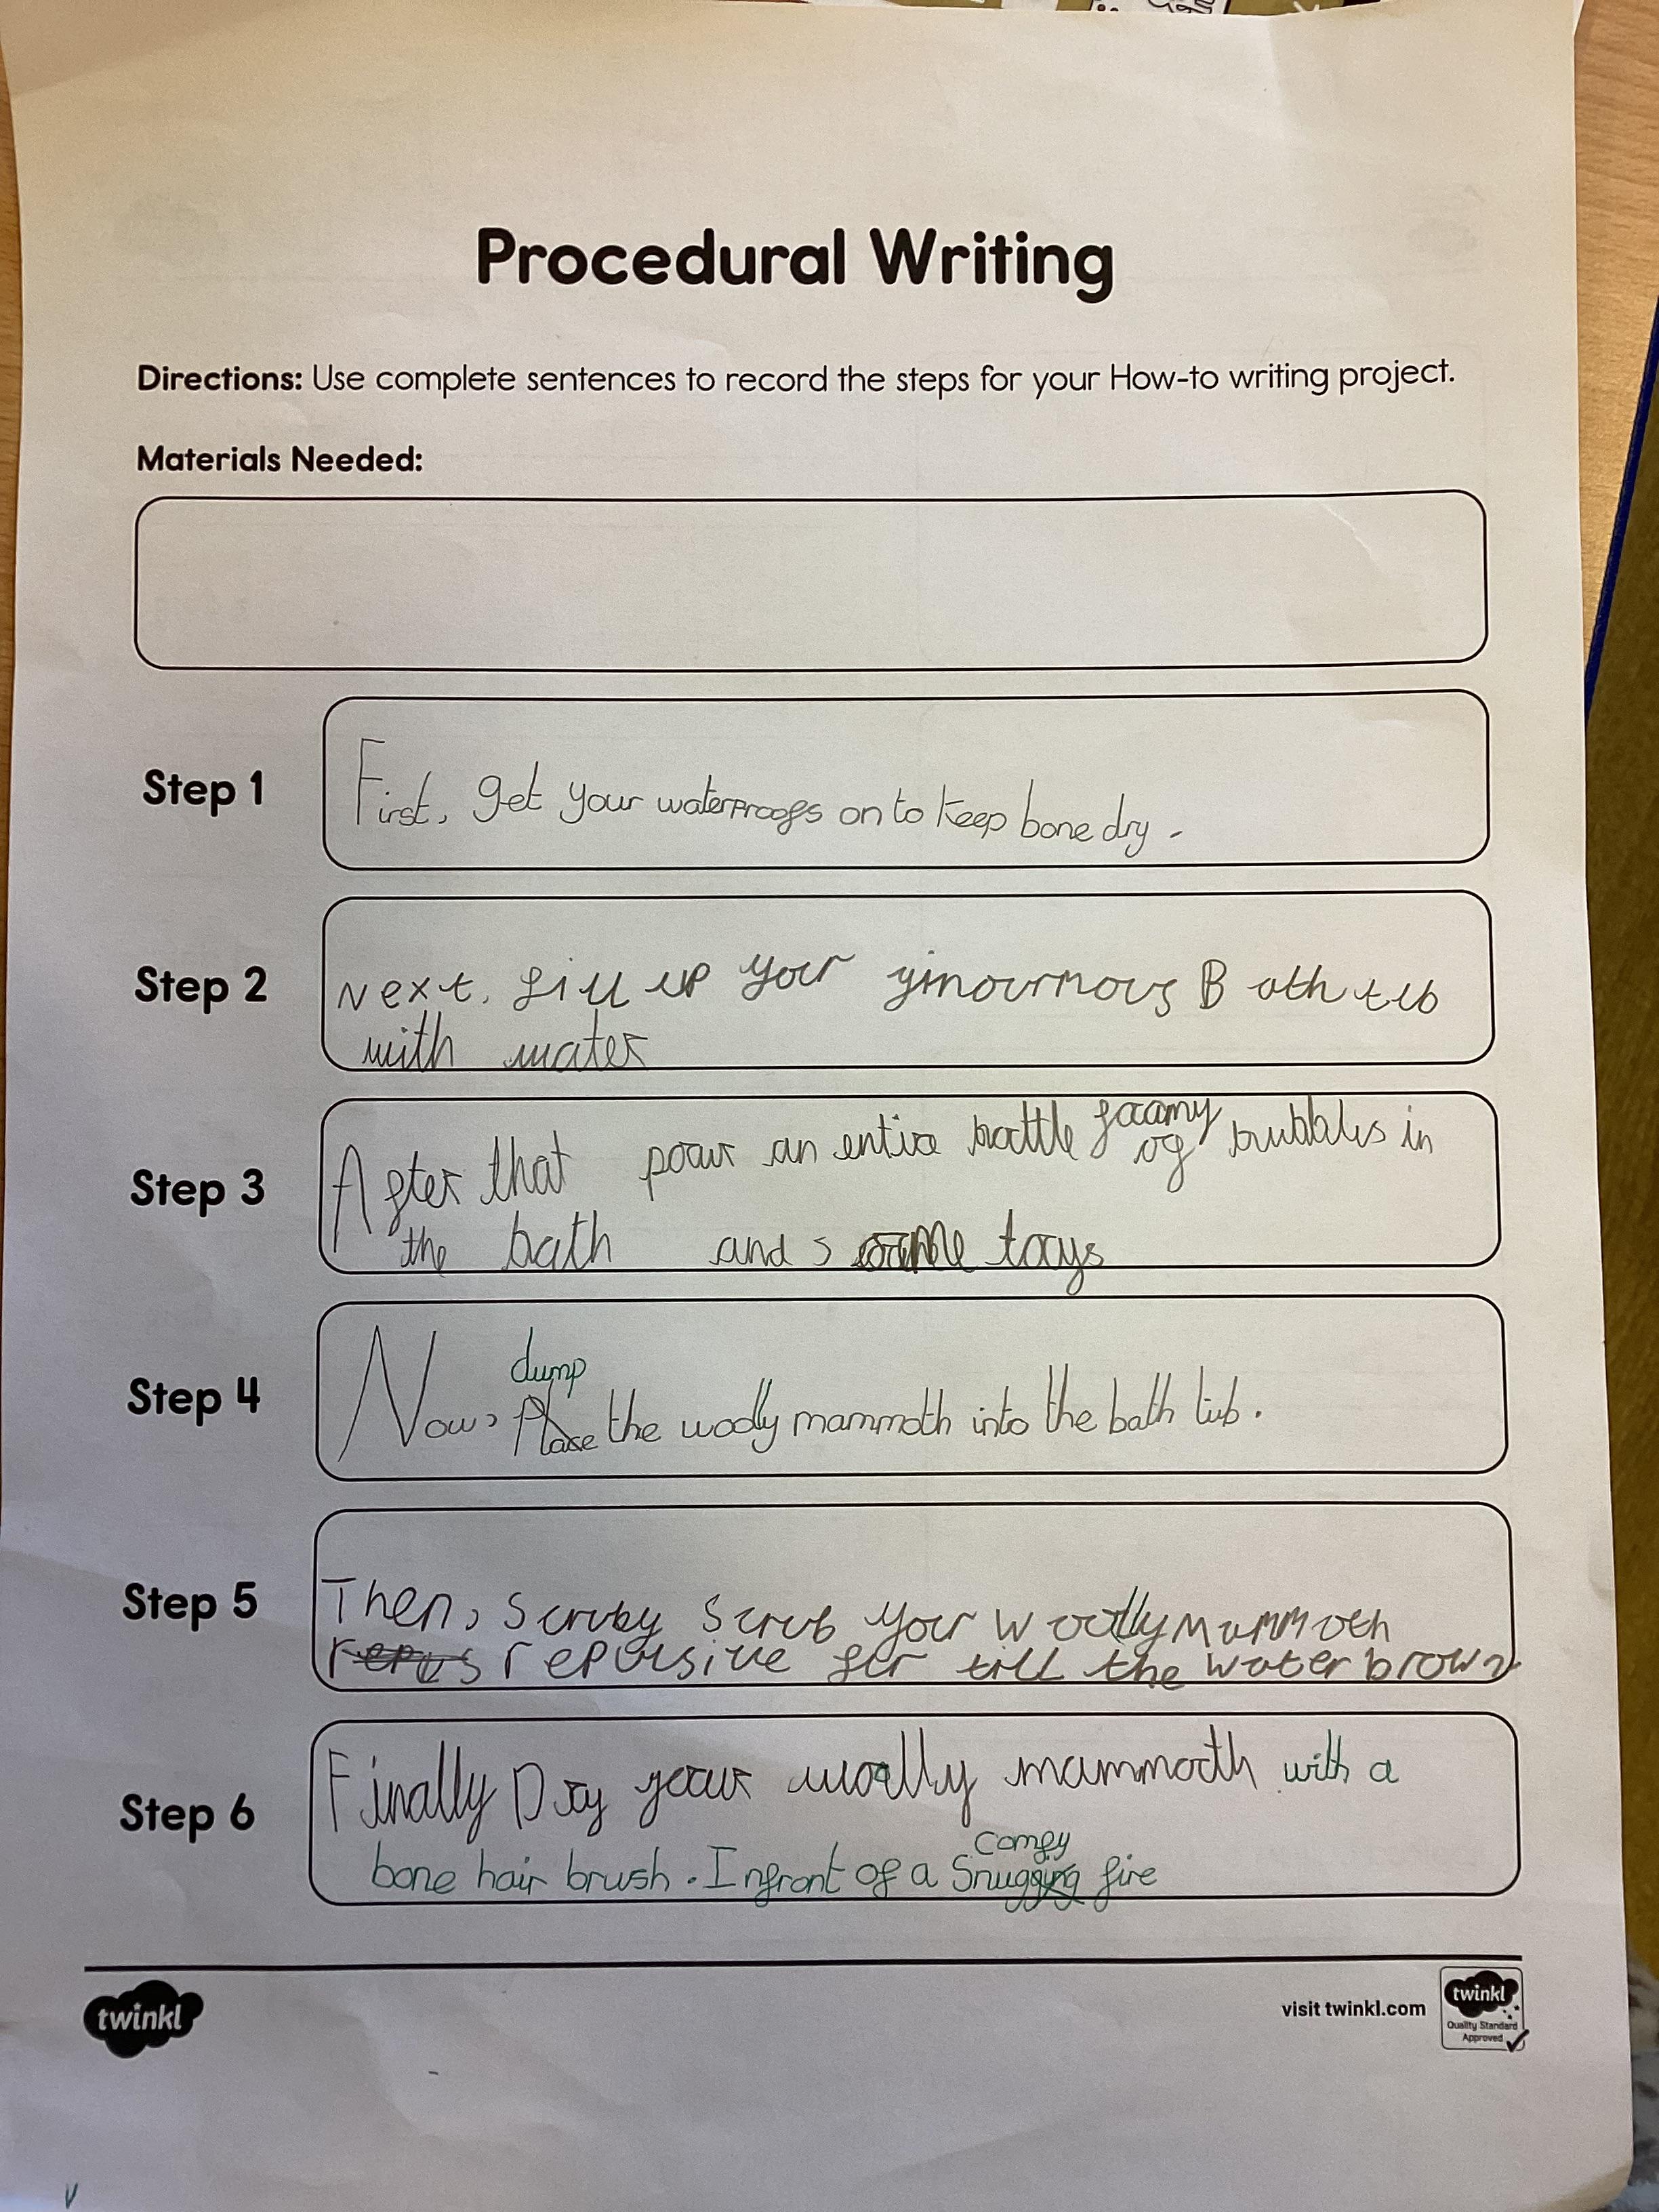 Procedural Writing
Directions: Use complete sentences to record the steps for your How-to writing project.
Materials Needed:
Step 1
First, get your waterproofs on to keep bone dry.
Step 2
Next, fill up your ginourmous Bathtub
with water
Step 3
foamy
After that pour an entire bottle of bubbles in
the bath and some toys
Step 4
dump
Now, Place the woolly mammoth into the bath tub.
Step 5
Then, scruby scrub your woolly mammoth
repulsive fur till the water brown
Step 6
Finally Dry your woolly mammoth with a
comfy
bone hair brush. Infront of a Snugging fire
twinkl
visit twinkl.com
twinkl
Quality Standard
Approved